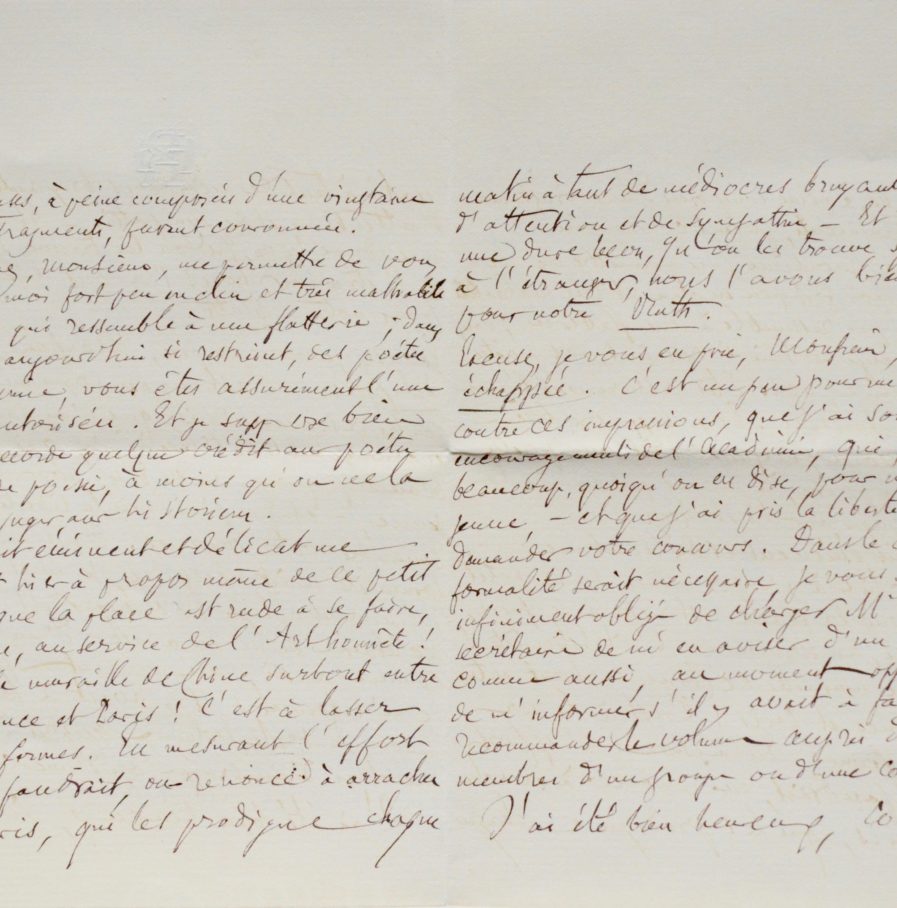 à peine composées d'une vingtaine
fragments, furent couronnées.
Monsieur, me permettre de vous
fort peu enclin et très malhabile
qui ressemble à une flatterie ; dans
aujourd'hui si restreint, des poètes
vous êtes assurément l'une
Et je suppose bien
quelque crédit aux poètes
poésie, à moins qu'on ne la
juger aux historiens.
éminent et délicat me
hier à propos même de ce petit
que la place est rude à se faire,
au service de l'Art honnête !
muraille de Chine surtout entre
et Paris ! C'est à lasser
formes. En mesurant l'effort
faudrait, on renonce à arracher
qui les prodigue chaque
matin à tant de médiocres bruyant
d'attention et de sympathie — Et
une dure leçon, qu'on les trouve
à l'étranger, nous l'avons bien
pour notre
Excusez, je vous en prie, Monsieur,
échappée. C'est un peu pour
contre ces impressions, que j'ai
encouragements de l'Académie, qui
beaucoup, quoiqu'on en dise, pour
jeune — et que j'ai pris la liberté
demander votre concours. Dans le
formalité serait nécessaire je vous
infiniment obligé de charger Mr
secrétaire de m'en aviser d'un
comme aussi au moment
de m'informer s'il y avait à
recommander le volume auprès
membres d'un groupe ou d'une
J'ai été bien heureux,